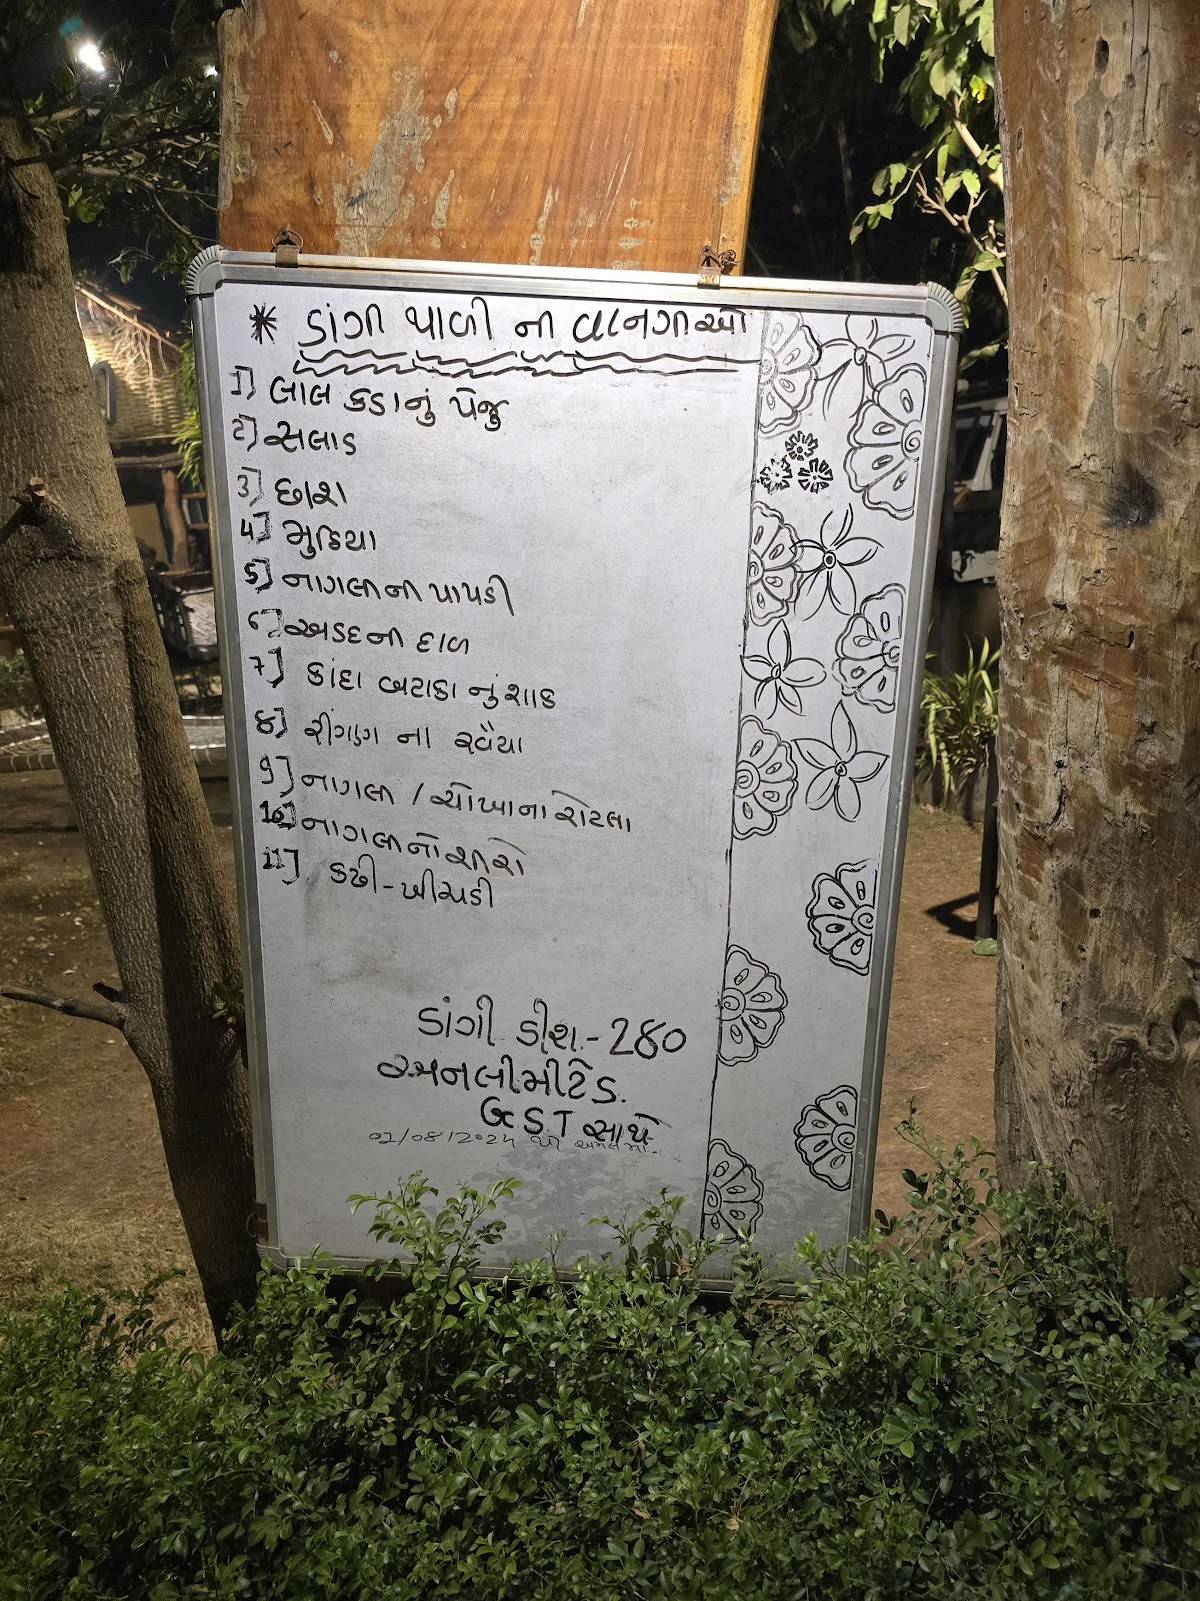 * ડાંગી થાળી ની વાનગીઓ
1] લાલ કડાનું પેજુ
2] સલાડ
3] છાશ
4] મુઠિયા
5] નાગલીની પાપડી
6] અડદની દાળ
7] કાંદા બટાકા નું શાક
8] રીંગણ ના રવૈયા
9] નાગલી / ચોખાના રોટલા
10] નાગલીનો શીરો
11] કઢી-ખીચડી
ડાંગી ડીશ - 280
અનલીમીટેડ.
GST સાથે
01/08/2024 થી અમલમાં.